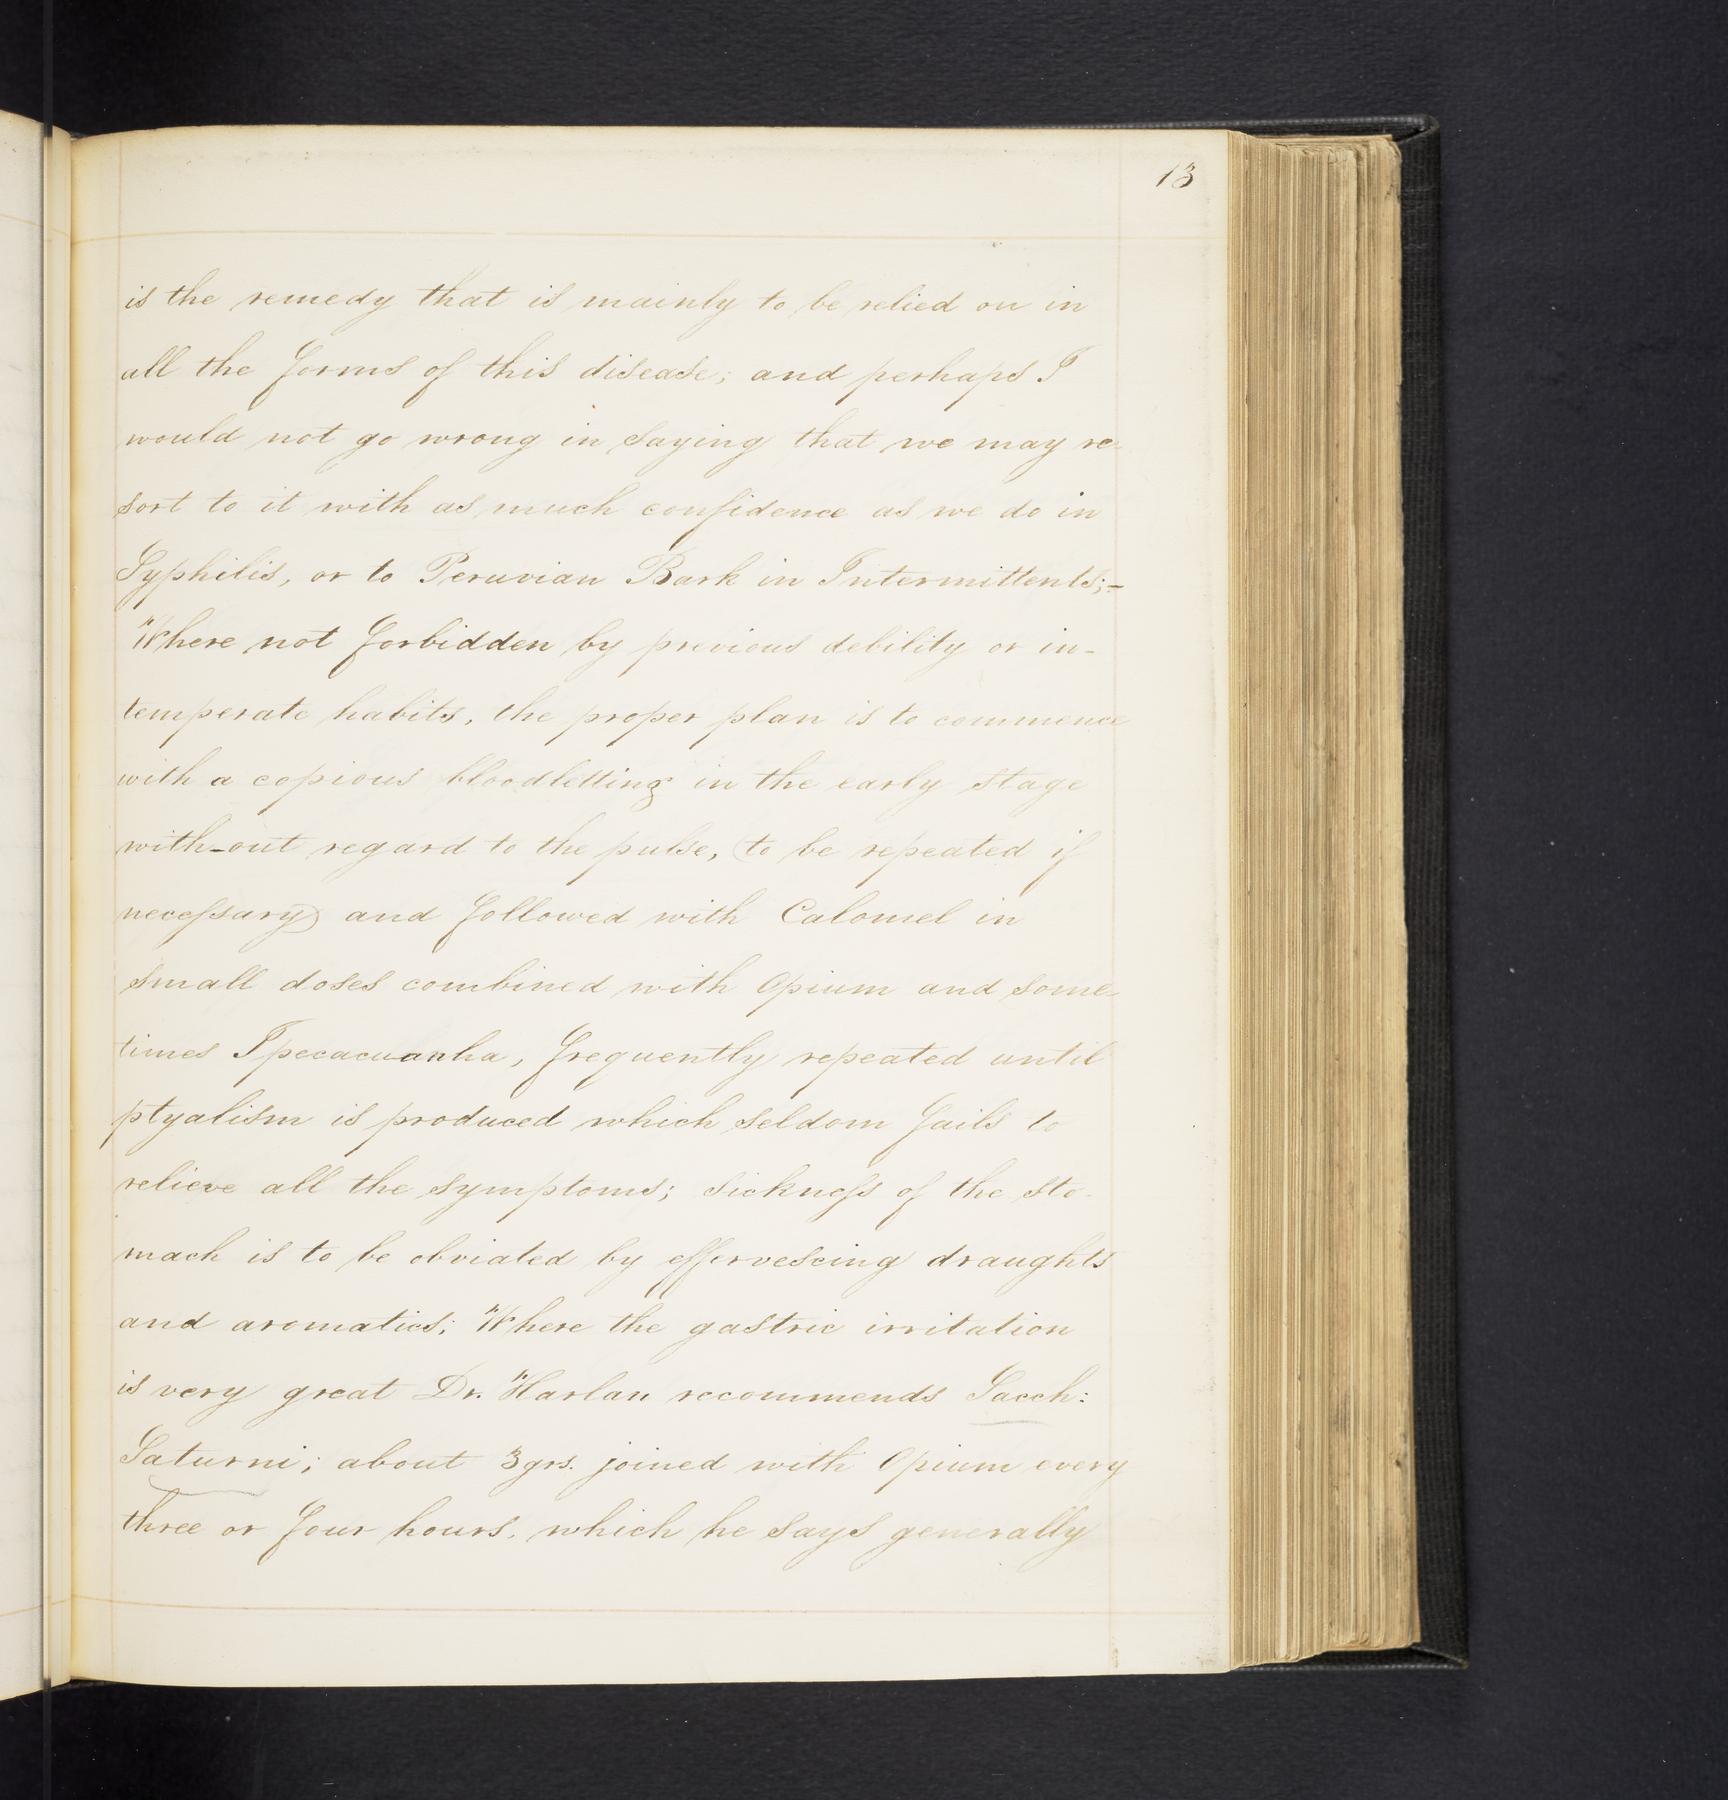 13
is the remedy that is mainly to be relied on in
all the forms of this disease; and perhaps I
would not go wrong in saying that we may re-
sort to it with as much confidence as we do in
Syphilis, or to Peruvian Bark in Intermittents;-
Where not forbidden by previous debility or in-
temperate habits, the proper plan is to commence
with a copious bloodletting in the early stage
with-out regard to the pulse, (to be repeated if
neceſsary) and followed with Calomel in
small doses combined with Opium and some-
times Ipecacuanha, frequently repeated until
ptyalism is produced which seldom fails to
relieve all the symptoms; sickneſs of the sto-
mach is to be obviated by effervescing draughts
and aromatics; Where the gastric irritation
is very great Dr. Harlan recommends Sacch:
Saturni; about 3grs. joined with Opium every
three or four hours, which he says generally